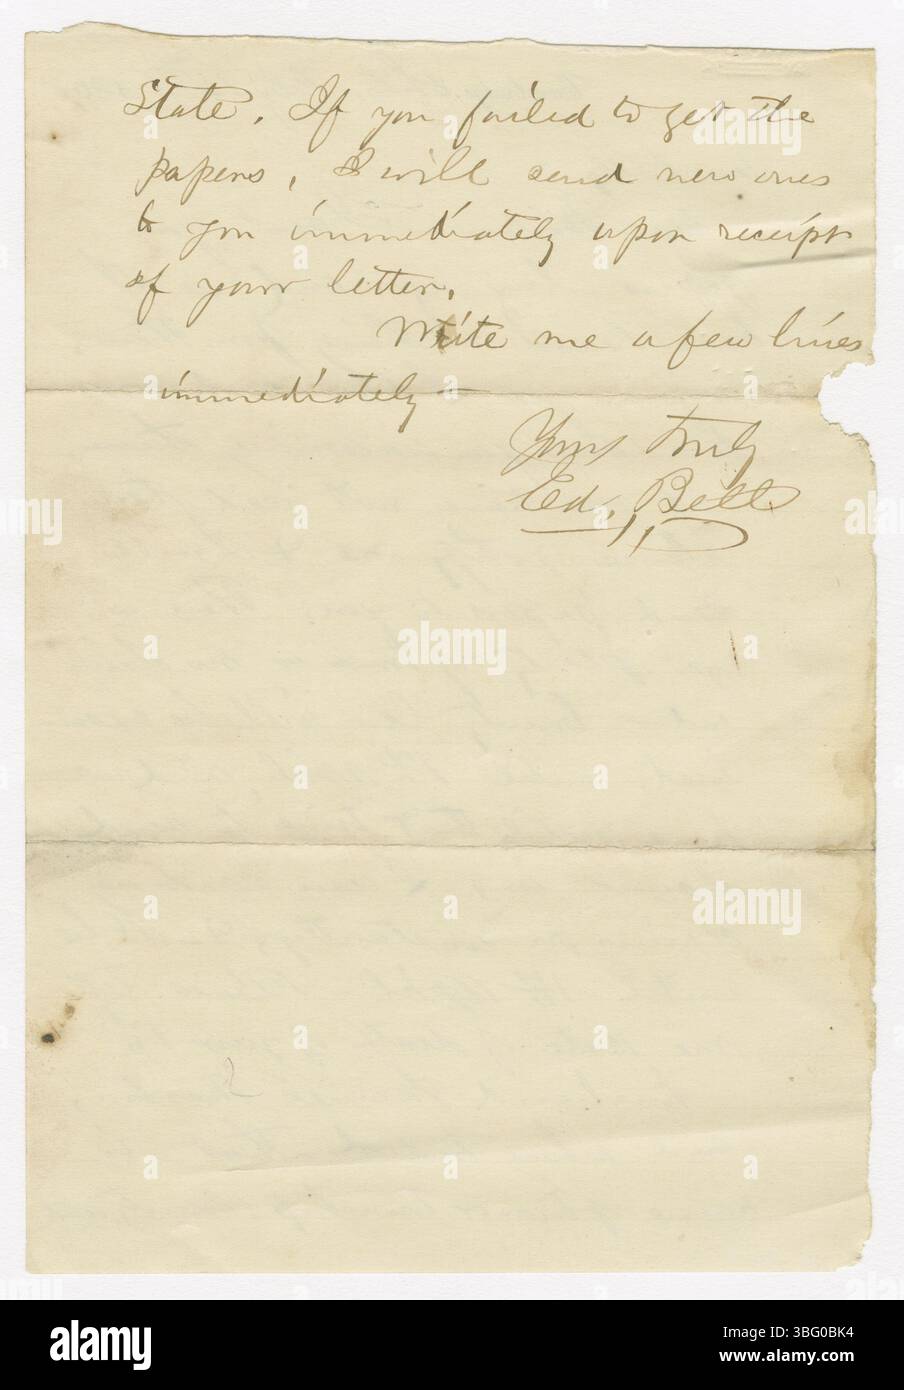 State. If you failed to get the
papers, I will send new ones
to you immediately upon receipt
of your letter.
Write me a few lines
immediately
Yours truly
Ed. Betts
alamy
alamy
alamy
Image ID: 3BG0BK4
www.alamy.com